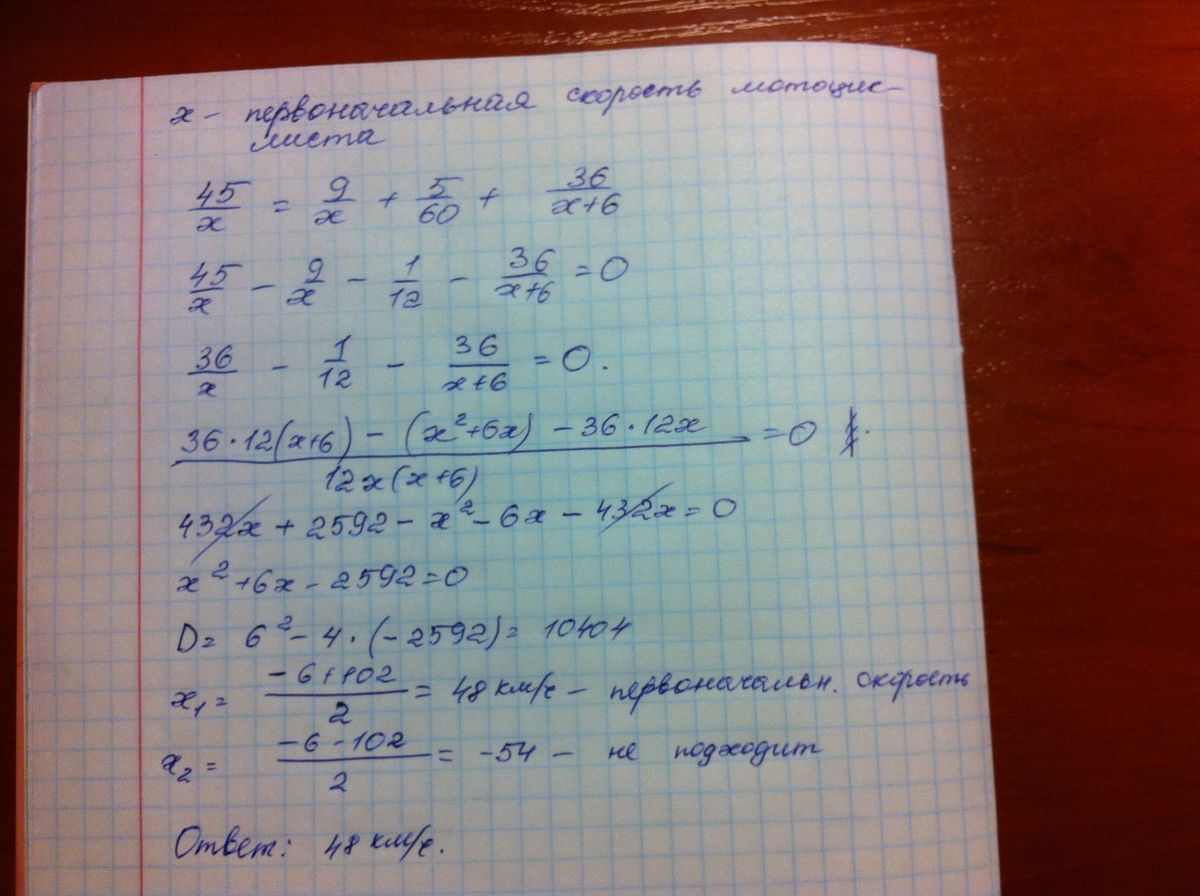 x - первоначальная скорость мотоцик-
листа
45/x = 9/x + 5/60 + 36/(x+6)
45/x - 9/x - 1/12 - 36/(x+6) = 0
36/x - 1/12 - 36/(x+6) = 0.
(36·12(x+6) - (x²+6x) - 36·12x)/(12x(x+6)) = 0
432x + 2592 - x² - 6x - 432x = 0
x² + 6x - 2592 = 0
D = 6² - 4·(-2592) = 10404
x₁ = (-6+102)/2 = 48 км/ч - первоначальн. скорость
x₂ = (-6-102)/2 = -54 - не подходит
Ответ: 48 км/ч.